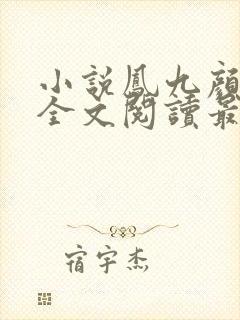 小説鳳九顔
全文閱讀最
宿宇杰